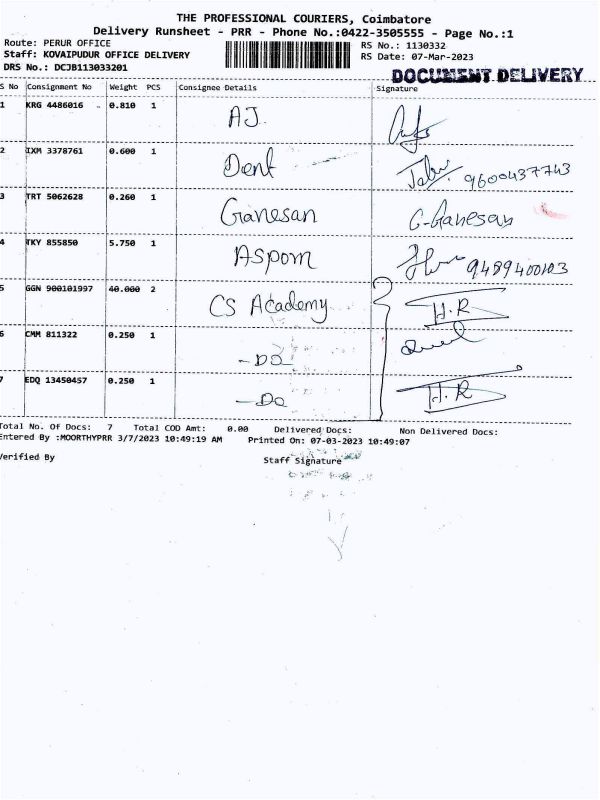 THE PROFESSIONAL COURIERS, Coimbatore
Delivery Runsheet - PRR - Phone No.:0422-3505555 - Page No.:1
Route: PERUR OFFICE RS No.: 1130332
Staff: KOVAIPUDUR OFFICE DELIVERY RS Date: 07-Mar-2023
DRS No.: DCJB113033201 DOCUMENT DELIVERY
S No Consignment No Weight PCS Consignee Details Signature
1 KRG 4486016 0.810 1 AJ
2 IXM 3378761 0.600 1 Dent 9600437743
3 TRT 5062628 0.260 1 Ganesan G-Ganesan
4 TKY 855850 5.750 1 ASpom 9489400103
5 GGN 900101997 40.000 2 CS Academy H.R
6 CMM 811322 0.250 1 -DO
7 EDQ 13450457 0.250 1 -Do H.R
Total No. Of Docs: 7 Total COD Amt: 0.00 Delivered Docs: Non Delivered Docs:
Entered By :MOORTHYPRR 3/7/2023 10:49:19 AM Printed On: 07-03-2023 10:49:07
Verified By Staff Signature